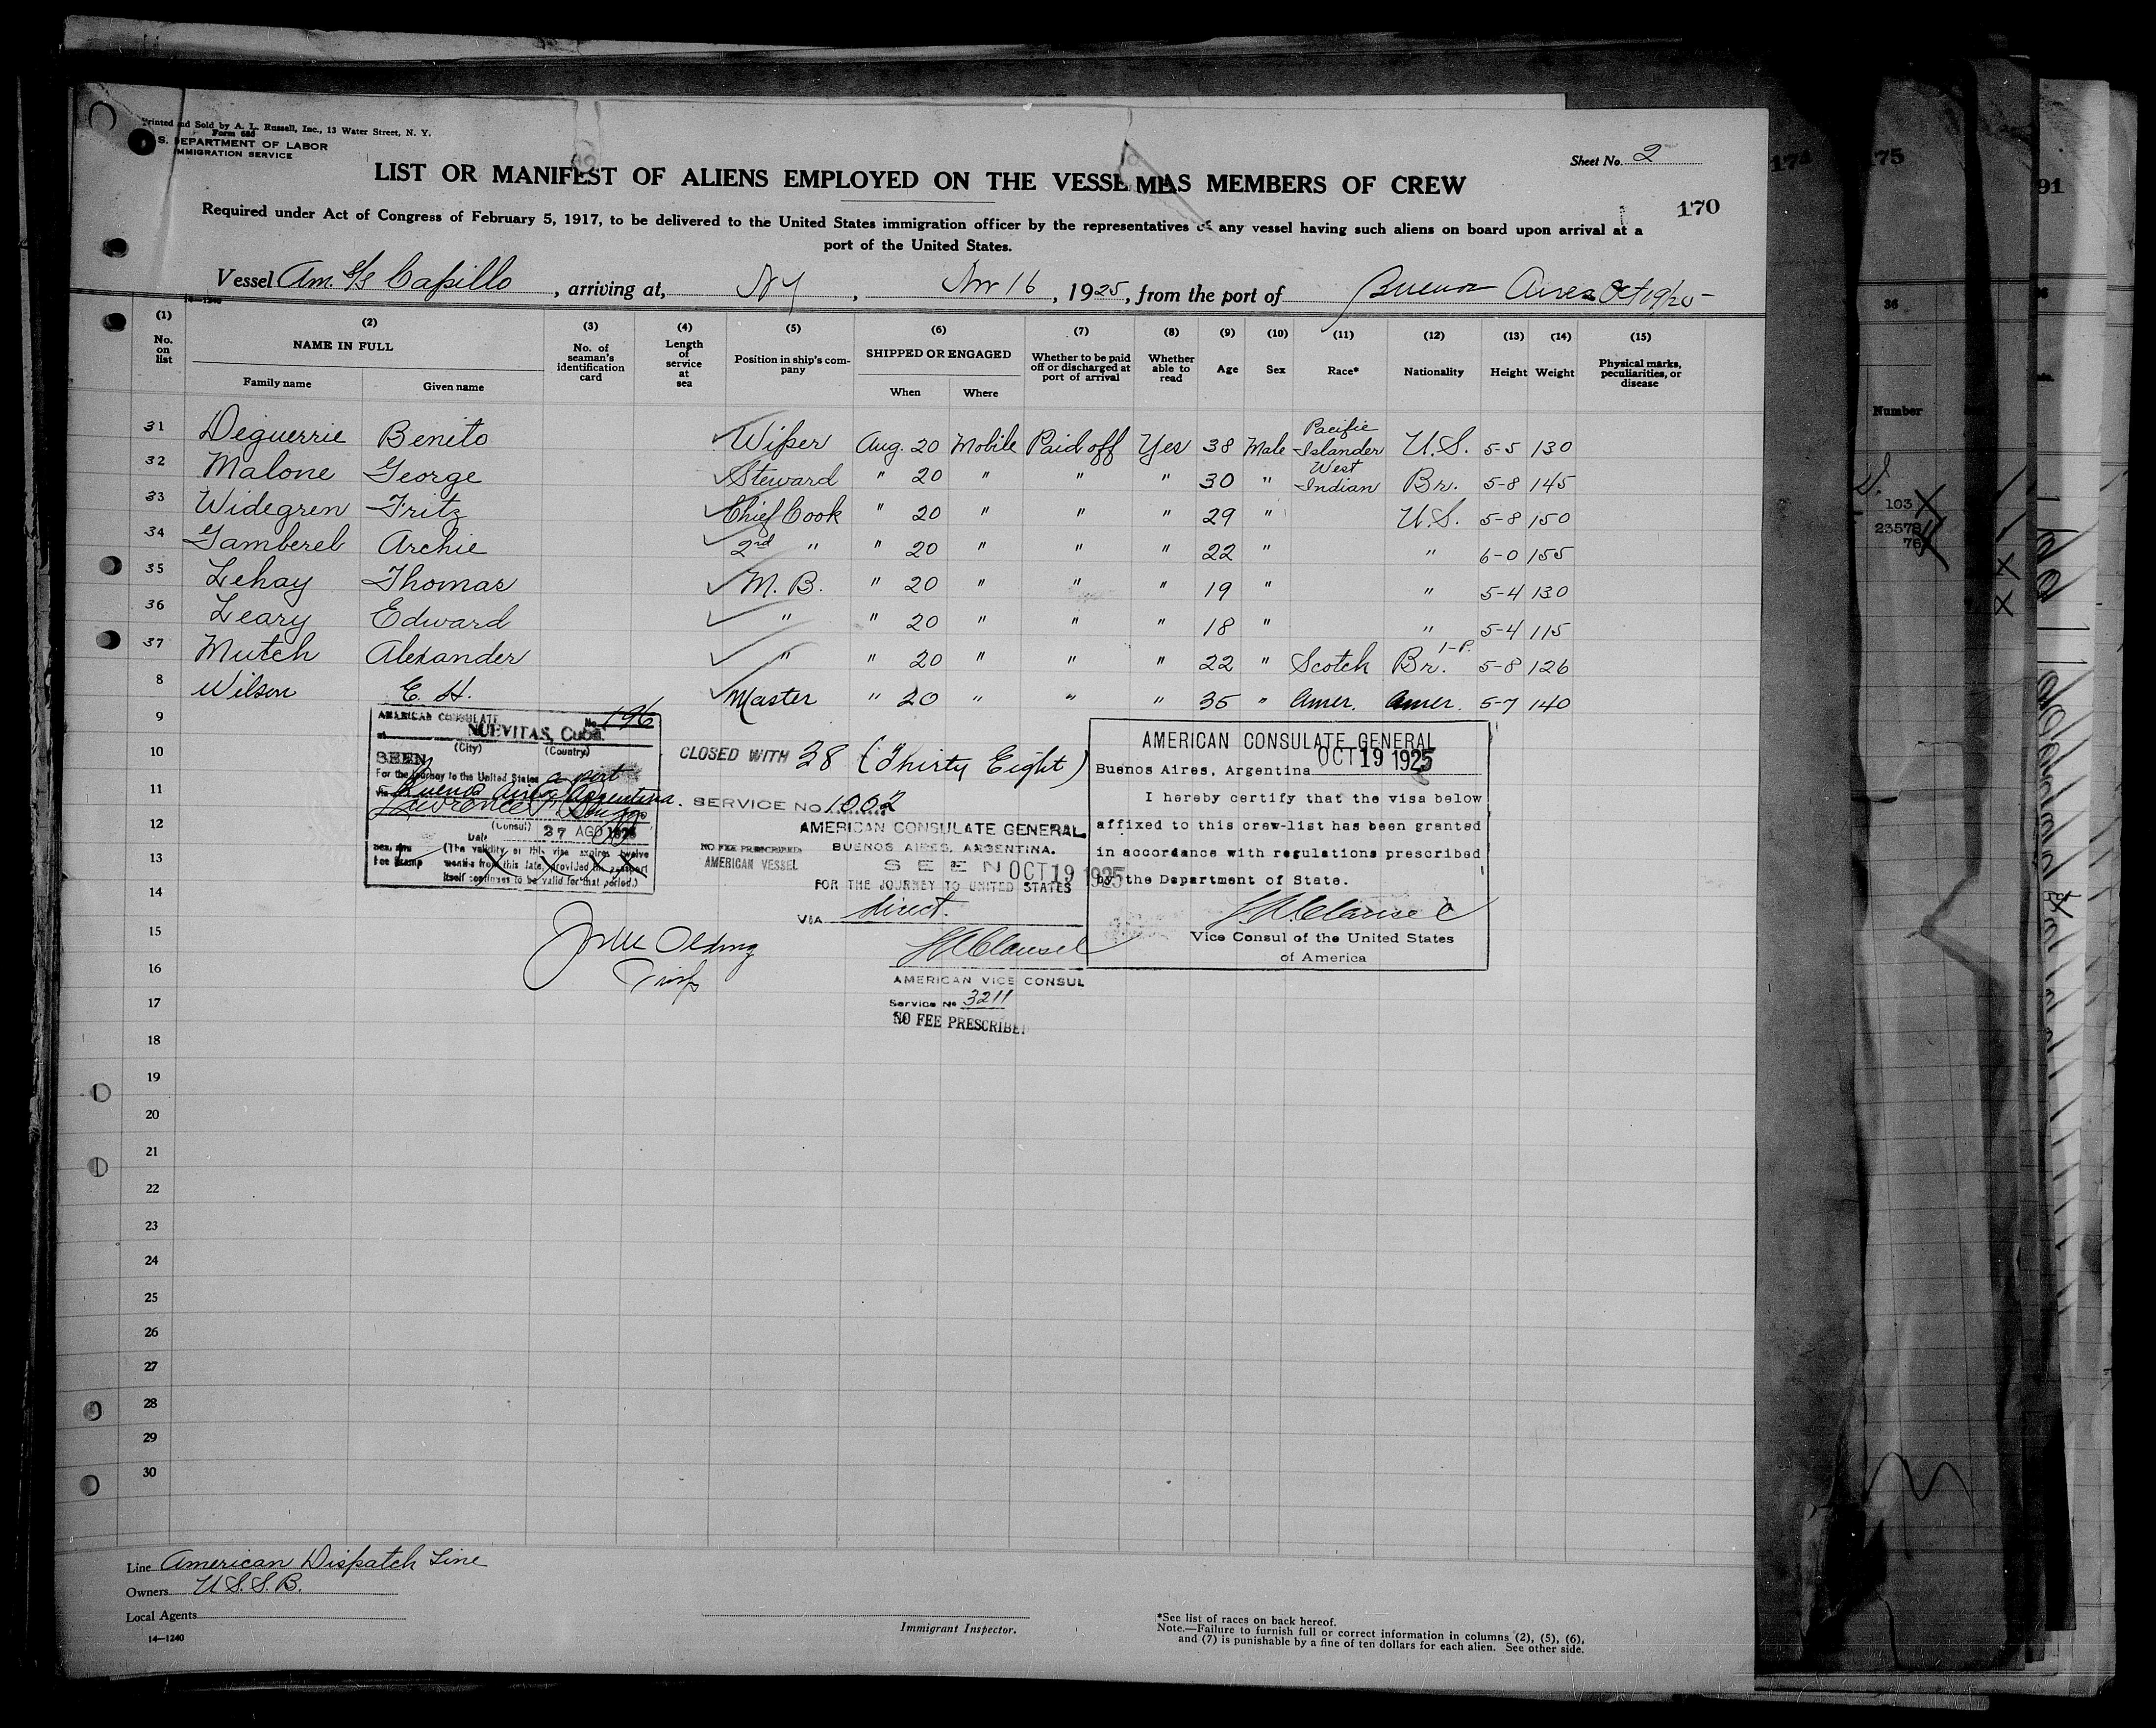 Printed and Sold by A. L. Russell, Inc., 13 Water Street, N. Y.
Form 680
S. DEPARTMENT OF LABOR
IMMIGRATION SERVICE
Sheet No. 2
LIST OR MANIFEST OF ALIENS EMPLOYED ON THE VESSEL AS MEMBERS OF CREW
170
Required under Act of Congress of February 5, 1917, to be delivered to the United States immigration officer by the representatives of any vessel having such aliens on board upon arrival at a
port of the United States.
Vessel Am. S/S Capillo, arriving at, NY, Nov 16, 1925, from the port of Buenos Aires Oct 19/25
14-1240
(1) (2) (3) (4) (5) (6) (7) (8) (9) (10) (11) (12) (13) (14) (15)
No. on list
NAME IN FULL
Family name Given name
No. of seaman's identification card
Length of service at sea
Position in ship's company
SHIPPED OR ENGAGED
When Where
Whether to be paid off or discharged at port of arrival
Whether able to read
Age Sex Race* Nationality Height Weight
Physical marks, peculiarities, or disease
31 Deguerrie Benito Wiper Aug. 20 Mobile Paid off Yes 38 Male Pacific Islander U.S. 5-5 130
32 Malone George Steward " 20 " " " 30 " West Indian Br. 5-8 145
33 Widegren Fritz Chief Cook " 20 " " " 29 " U.S. 5-8 150
34 Gamberel Archie 2nd " " 20 " " " 22 " " 6-0 155
35 Lehay Thomas M. B. " 20 " " " 19 " " 5-4 130
36 Leary Edward " " 20 " " " 18 " " 5-4 115
37 Mutch Alexander " " 20 " " " 22 " Scotch Br. 1-P. 5-8 126
8 Wilson E. H. Master " 20 " " " 35 " Amer. Amer. 5-7 140
9
10
11
12
13
14
15
16
17
18
19
20
21
22
23
24
25
26
27
28
29
30
AMERICAN CONSULATE No 196
at NUEVITAS, Cuba.
(City) (Country)
SEEN
For the journey to the United States
via Buenos Aires Argentina.
(Consul)
Date 27 AGO 1925
Fee Stamp
(The validity of this visa expires twelve
months from this date, provided the passport
itself continues to be valid for that period.)
CLOSED WITH 38 (Thirty Eight)
SERVICE No 1002
AMERICAN CONSULATE GENERAL
BUENOS AIRES, ARGENTINA.
NO FEE PRESCRIBED
AMERICAN VESSEL
SEEN OCT 19 1925
FOR THE JOURNEY TO UNITED STATES
VIA direct.
AMERICAN VICE CONSUL
Service No 3211
NO FEE PRESCRIBED
AMERICAN CONSULATE GENERAL
Buenos Aires, Argentina OCT 19 1925
I hereby certify that the visa below
affixed to this crew-list has been granted
in accordance with regulations prescribed
by the Department of State.
Vice Consul of the United States
of America
Line American Dispatch Line
Owners U.S.S.B.
Local Agents
14-1240
Immigrant Inspector.
*See list of races on back hereof.
Note.—Failure to furnish full or correct information in columns (2), (5), (6),
and (7) is punishable by a fine of ten dollars for each alien. See other side.
175
91
36
Number
103
23578
76